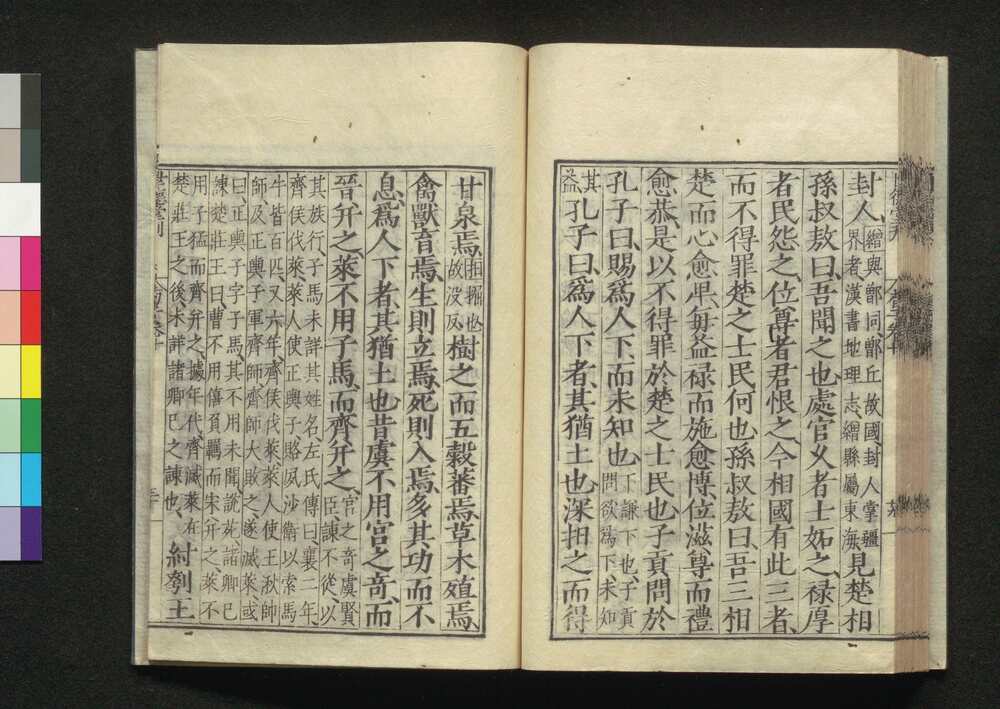 封人、繒與鄫同鄫丘故國封人掌疆界者漢書地理志繒縣屬東海見楚相
孫叔敖曰、吾聞之也、處官久者士妬之、禄厚
者民怨之、位尊者君恨之、今相國有此三者、
而不得罪楚之士民何也、孫叔敖曰、吾三相
楚而心愈卑、每益禄而施愈博、位滋尊而禮
愈恭、是以不得罪於楚之士民也、子貢問於
孔子曰、賜爲人下、而未知也、下謙下也、子貢問欲爲下未知
其益孔子曰、爲人下者、其猶土也、深抇之而得
甘泉焉、抇掘也故没反樹之而五穀蕃焉、草木殖焉、
禽獸育焉、生則立焉、死則入焉、多其功而不
息、爲人下者、其猶土也、昔虞不用宮之奇、而
晉并之、萊不用子馬、而齊并之、宮之奇虞賢臣諫不從、以
其族行、子馬未詳其姓名、左氏傳曰、襄二年、
齊侯伐萊、萊人使正輿子賂夙沙衛以索馬
牛皆百匹、又六年、齊侯伐萊、萊人使王湫帥
師、及正輿子軍齊師、齊師大敗之、遂滅萊、或
曰、正輿子字子馬、其不用未聞、說苑諸卿已
諫楚莊王曰、曹不用僖負羈而宋并之、萊不
用子猛而齊并之、據年代、齊滅萊在
楚莊王之後、未詳諸卿已之諫也、紂刳王